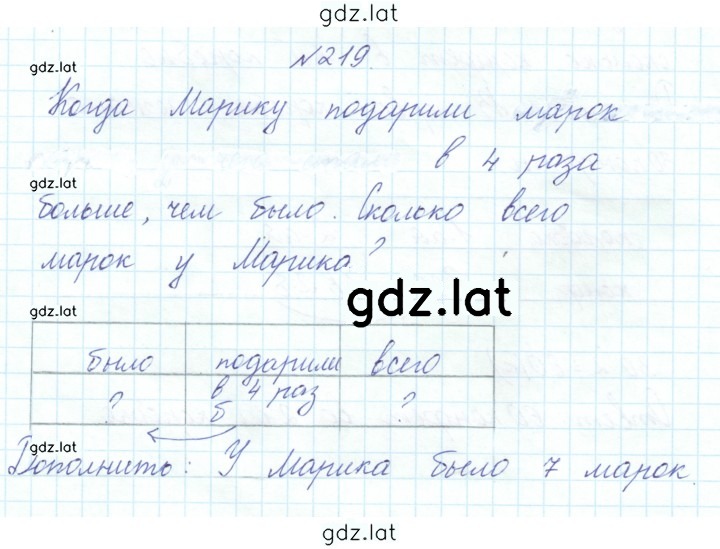 gdz.lat
№219.
gdz.lat
Когда Марику подарили марок
в 4 раза
gdz.lat
больше, чем было. Сколько всего
марок у Марика?
gdz.lat
gdz.lat
было подарили всего
? в 4 раз б ?
gdz.lat
Дополнить: У Марика было 7 марок.
gdz.lat